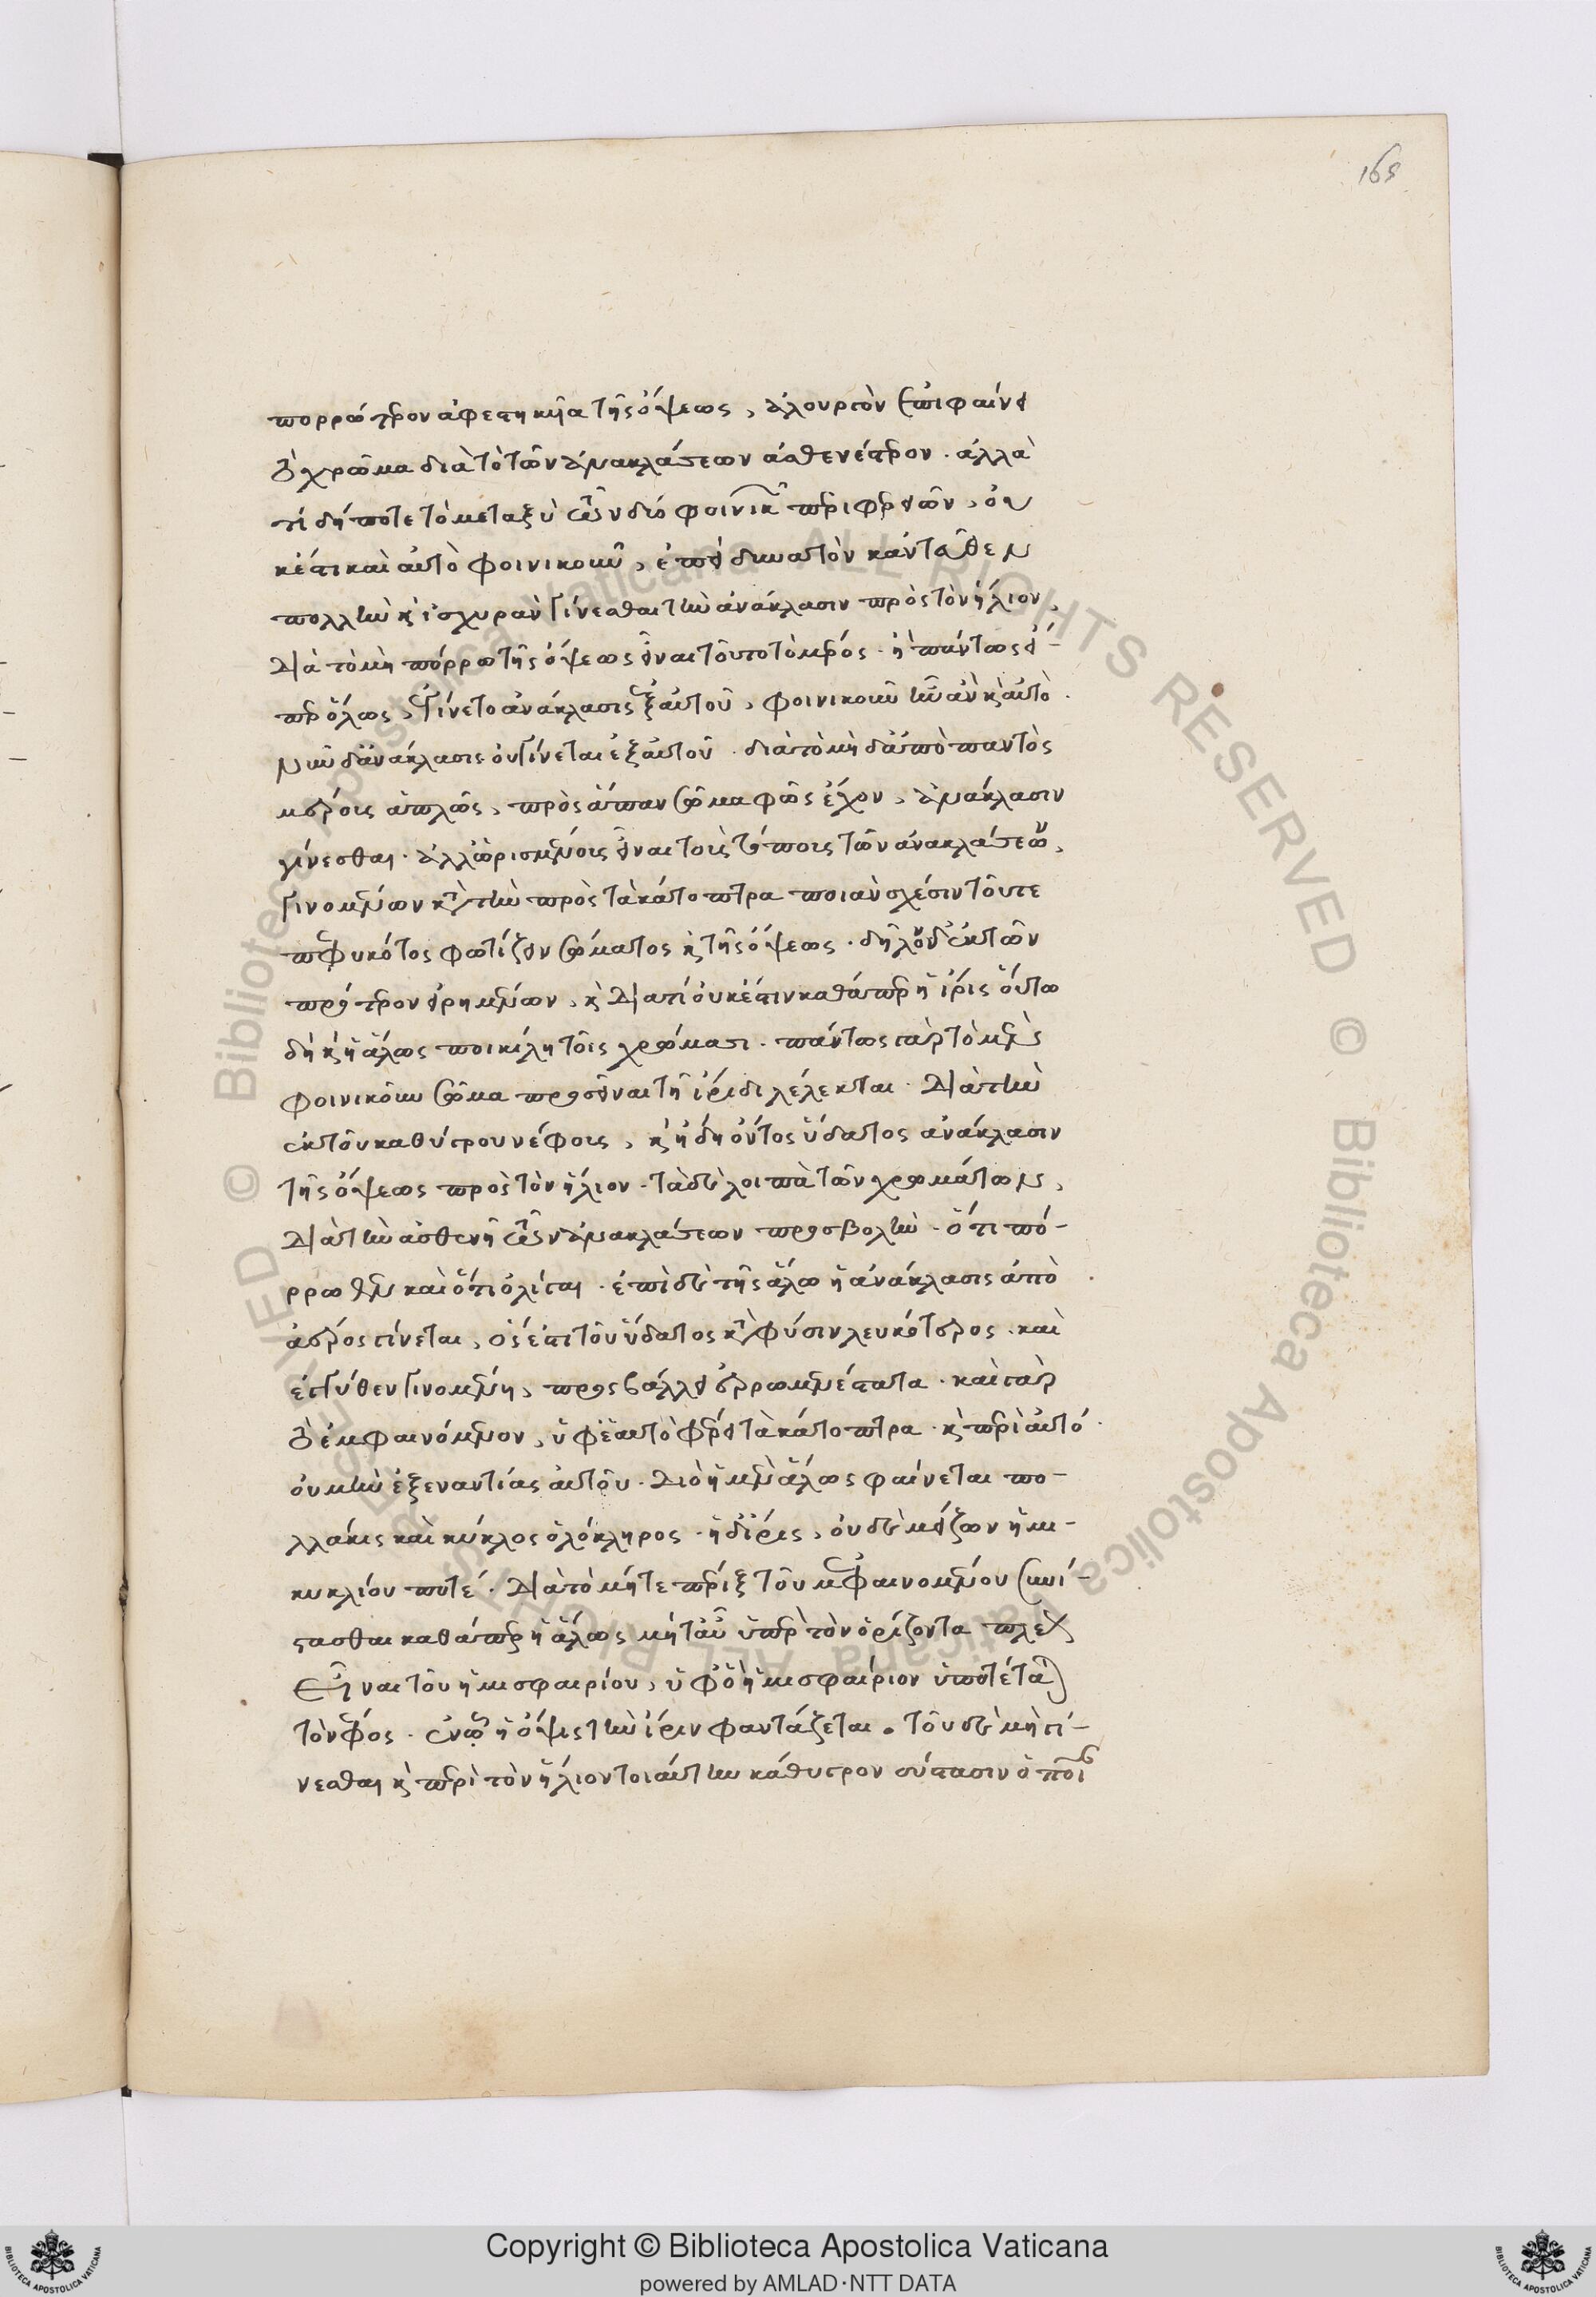 165
πορρώτερον ἀφεστηκυῖα τῆς ὄψεως, ἁλουργὸν ἐπιφαίνει
τὸ χρῶμα διὰ τὸ τῶν ἀνακλάσεων ἀσθενέστερον. ἀλλὰ
τί δήποτε τὸ μεταξὺ τῶν δύο φοινικῶν περιφερειῶν, οὐ
κέτι καὶ αὐτὸ φοινικοῦν, ἐπεὶ δυνατὸν κἀνταῦθεν
πολλὴν καὶ ἰσχυρὰν γίνεσθαι τὴν ἀνάκλασιν πρὸς τὸν ἥλιον,
διὰ τὸ μὴ πόρρω τῆς ὄψεως εἶναι τοῦτο τὸ μέρος. ἢ πάντως εἴ-
περ ὅλως, ἐγίνετο ἀνάκλασις ἐξ αὐτοῦ, φοινικοῦν ἦν ἂν καὶ αὐτό.
νῦν δ' ἀνάκλασις οὐ γίνεται ἐξ αὐτοῦ. διὰ τὸ μὴ δ' ἀπὸ παντὸς
μέρους ἁπλῶς, πρὸς ἅπαν σῶμα φῶς ἔχον, ἀνάκλασιν
γίνεσθαι. ἀλλ' ὡρισμένους εἶναι τοὺς τόπους τῶν ἀνακλάσεων,
γινομένων κατὰ τὴν πρὸς τὰ κάτοπτρα ποιὰν σχέσιν τοῦ τε
πεφυκότος φωτίζειν σώματος καὶ τῆς ὄψεως. δῆλον δ' ἐκ τῶν
πρότερον εἰρημένων, καὶ διατί οὐκ ἔστιν καθάπερ ἡ ἶρις οὕτω
δὴ καὶ ἡ ἅλως ποικίλη τοῖς χρώμασι. πάντως γὰρ τὸ μὲν
φοινικοῦν σῶμα προσεῖναι τῇ ἴριδι λέλεκται. διὰ τὴν
ἐκ τοῦ καθύγρου νέφους, καὶ ἤδη ὄντος ὕδατος ἀνάκλασιν
τῆς ὄψεως πρὸς τὸν ἥλιον. τὰ δὲ λοιπὰ τῶν χρωμάτων,
διὰ τὴν ἀσθενῆ τῶν ἀνακλάσεων προσβολήν. ὅτι πό-
ρρωθεν καὶ ὅτι ὀλίγαι. ἐπὶ δὲ τῆς ἅλω ἡ ἀνάκλασις ἀπὸ
ἀέρος γίνεται, ὅς ἐστι τοῦ ὕδατος κατὰ φύσιν λευκότερος. καὶ
ἐγγύθεν γινομένη, προσβάλλει ἐρρωμενέστατα. καὶ γὰρ
τὸ ἐμφαινόμενον, ὑφ' ἑαυτὸ φέρει τὰ κάτοπτρα. καὶ περὶ αὐτό.
οὐ μὴν ἐξεναντίας αὐτοῦ. διὸ ἡ μὲν ἅλως φαίνεται πο-
λλάκις καὶ κύκλος ὁλόκληρος. ἡ δ' ἶρις, οὐδὲ μείζων ἡμι-
κυκλίου ποτέ. διὰ τὸ μήτε πέριξ τοῦ ἐμφαινομένου συνί-
στασθαι καθάπερ ἡ ἅλως μήτ' αὖ ὑπὲρ τὸν ὁρίζοντα πλεῖον
εἶναι τοῦ ἡμισφαιρίου, ὑφ' ὃ ἡμισφαίριον ὑποτέταται
τὸ νέφος. ἐν ᾧ ἡ ὄψις τὴν ἶριν φαντάζεται. τοῦ δὲ μὴ γί-
νεσθαι καὶ περὶ τὸν ἥλιον τοιαύτην κάθυγρον σύστασιν ὁποία
Copyright © Biblioteca Apostolica Vaticana
powered by AMLAD·NTT DATA